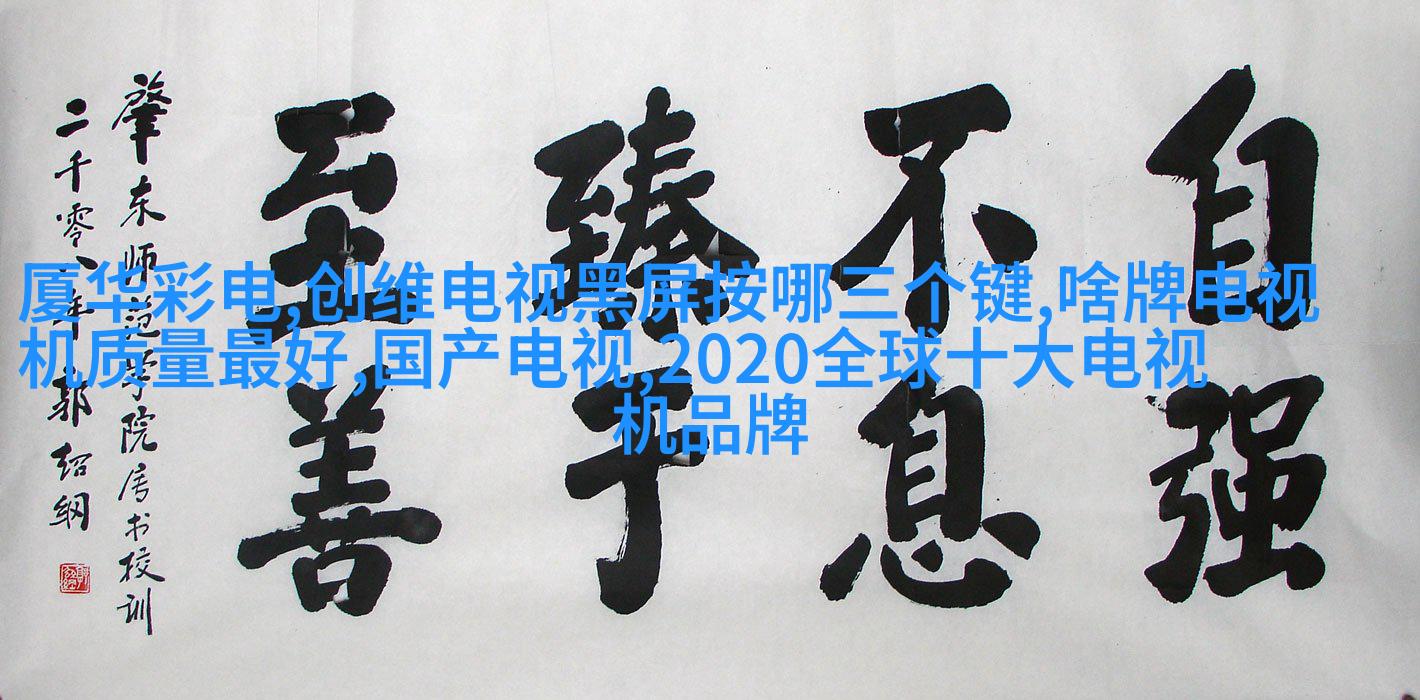 自强
不息
臻于
至善
肇东师范学院属书校训
二千零八年郭绍纲
厦华彩电,创维电视黑屏按哪三个键,啥牌电视
机质量最好,国产电视,2020全球十大电视
机品牌